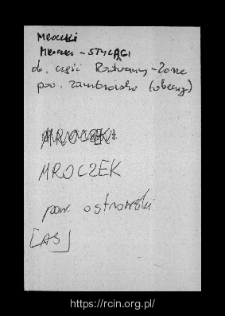 MROCZKI
MROCZKI - STYLĄGI
dz. część Rostuszny-Łone
pow. zambrowski (obecny)
MROCZEK
MROCZEK
pow. ostrowski
[AS]
https://rcin.org.pl/